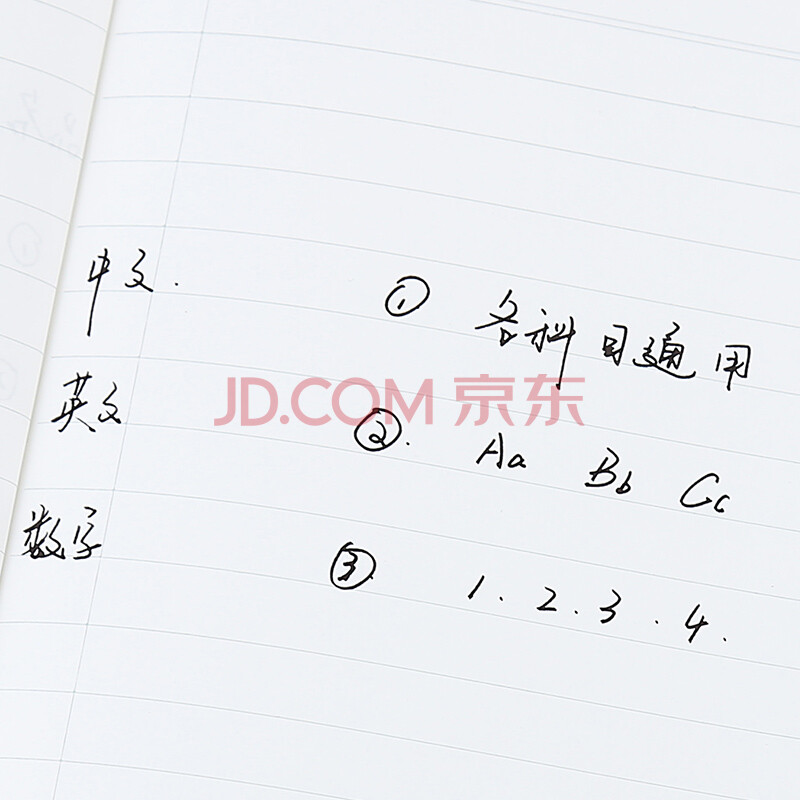 中文. ① 各科目通用
JD.COM 京东
英文 ②. Aa Bb Cc
数字 ③ 1. 2. 3. 4.